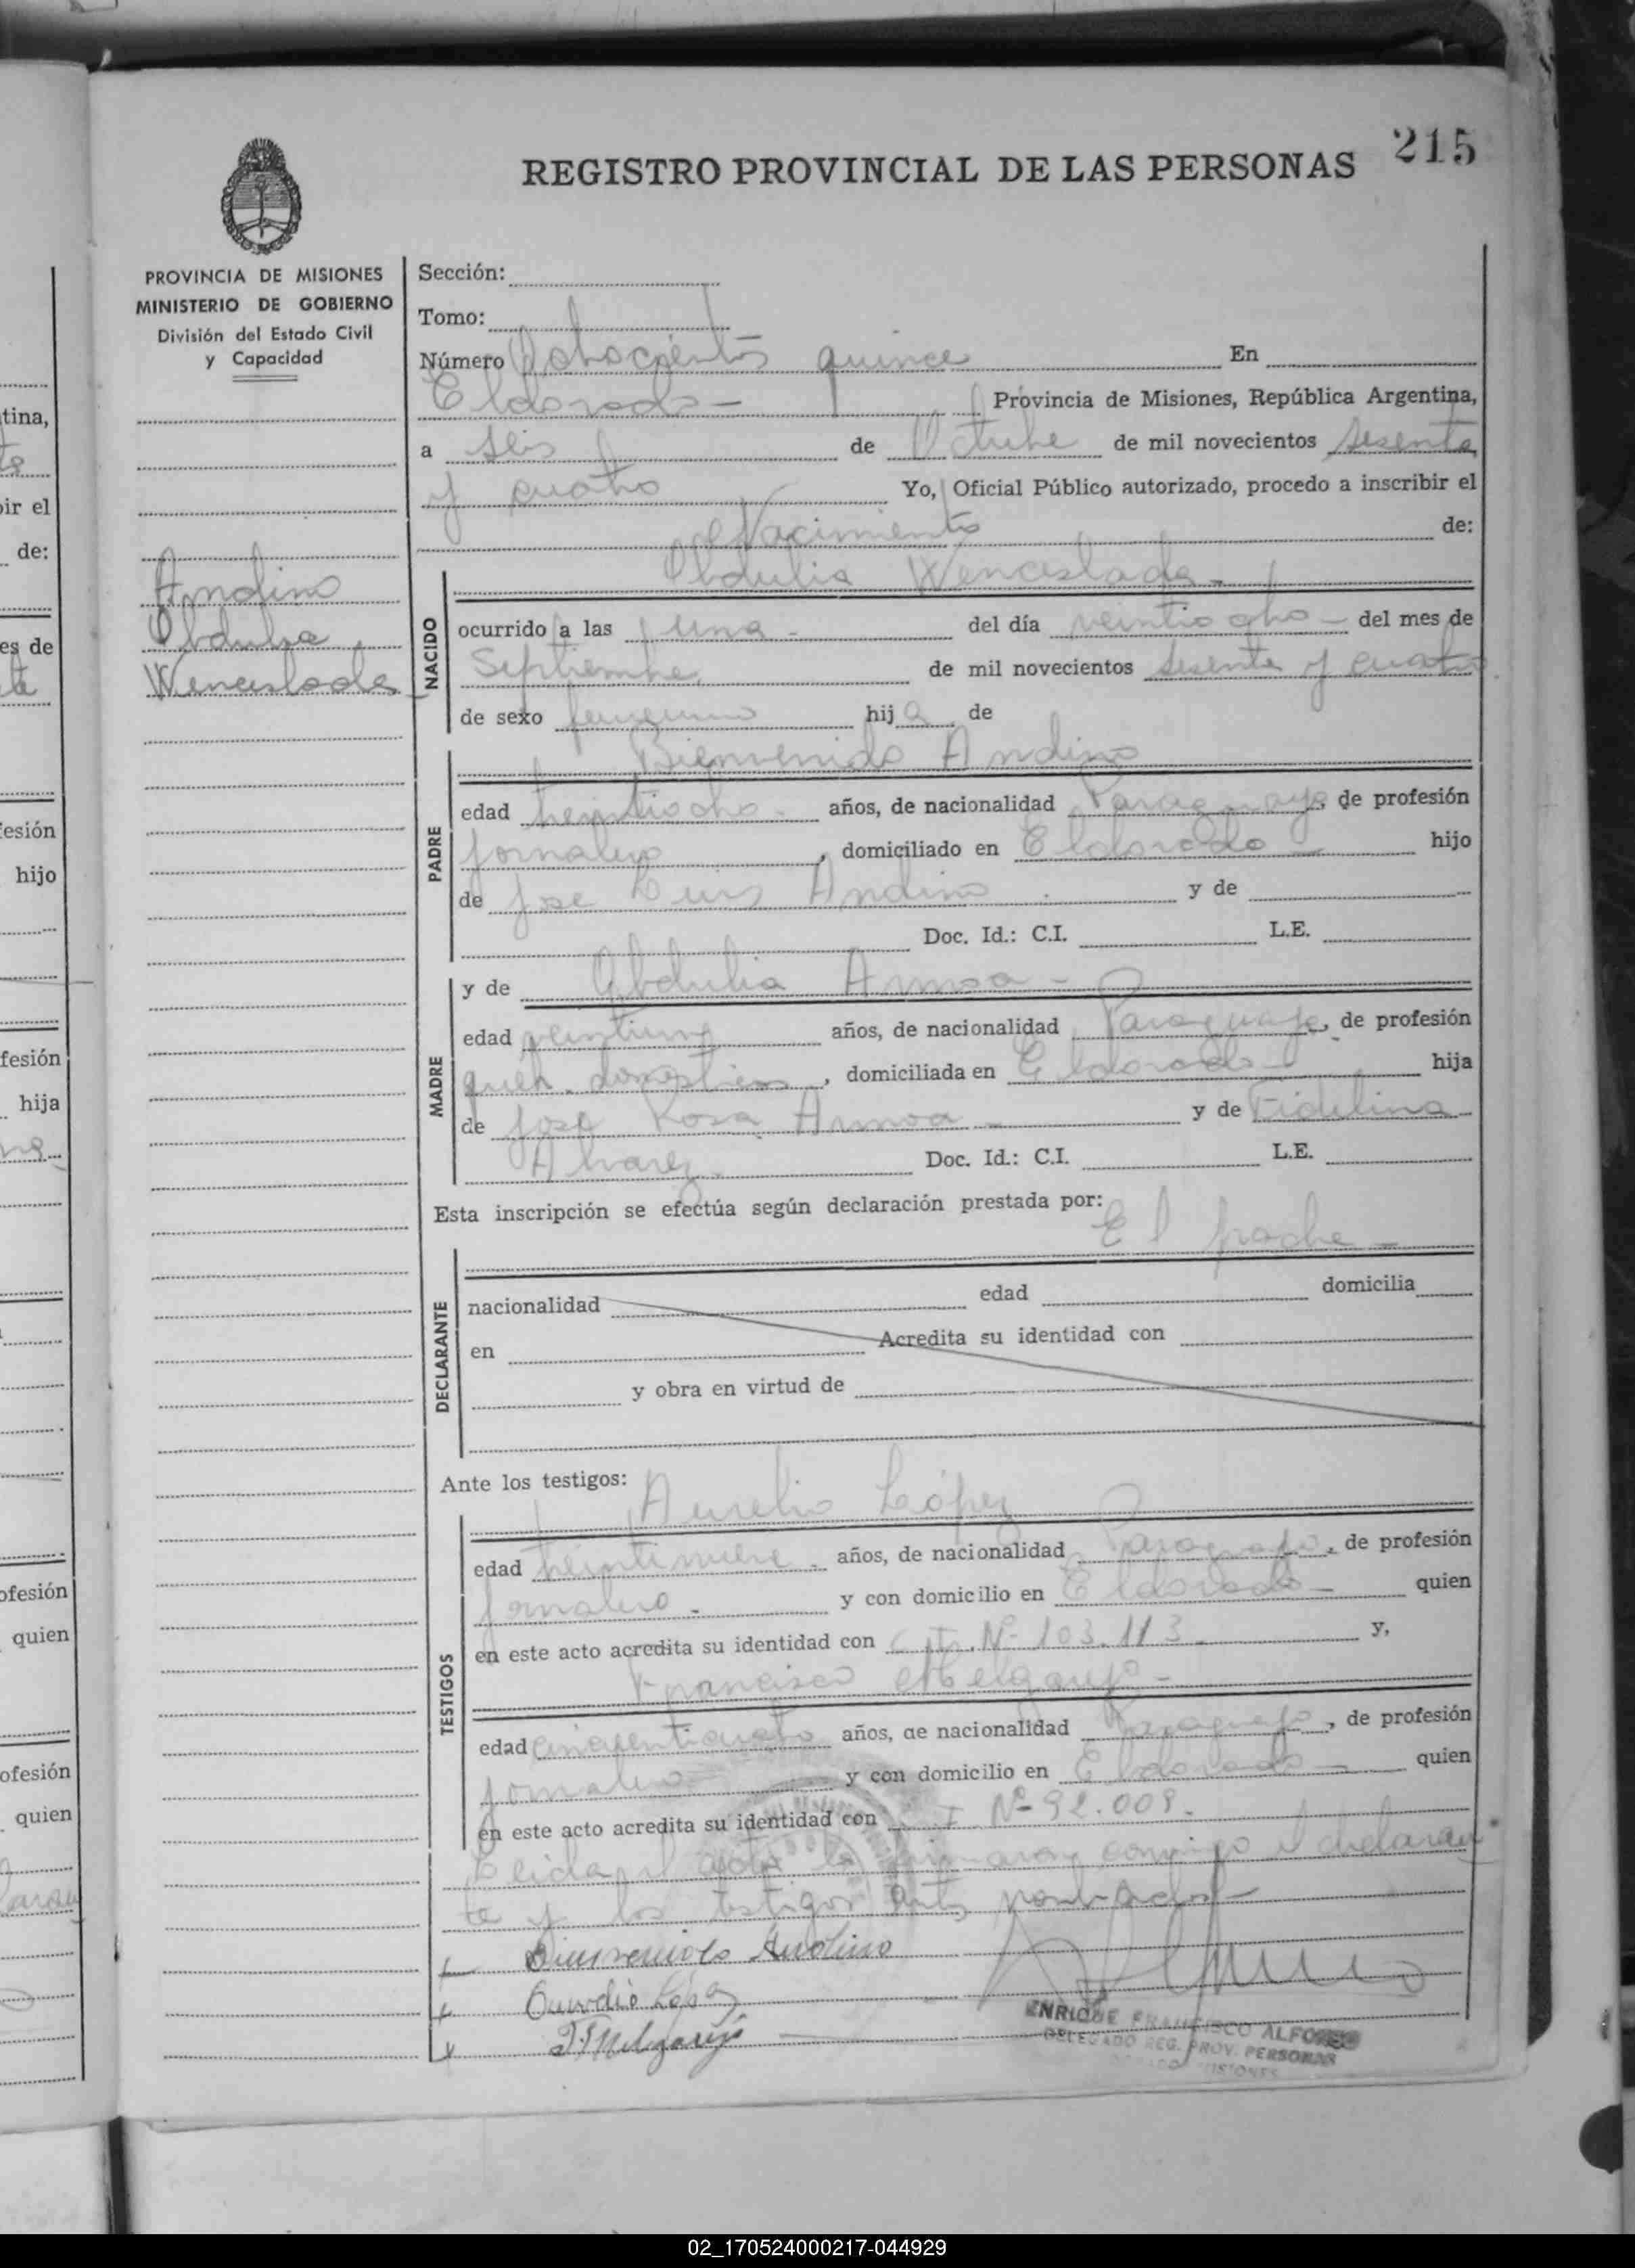 215
REGISTRO PROVINCIAL DE LAS PERSONAS
PROVINCIA DE MISIONES
MINISTERIO DE GOBIERNO
División del Estado Civil
y Capacidad
Andino
Obdulia
Wenceslada
Sección:
Tomo:
Número Ochocientos quince En
Eldorado - Provincia de Misiones, República Argentina,
a seis de Octubre de mil novecientos sesenta
y cuatro Yo, Oficial Público autorizado, procedo a inscribir el
Nacimiento de:
Obdulia Wenceslada -
NACIDO
ocurrido a las una - del día veintiocho - del mes de
Septiembre de mil novecientos sesenta y cuatro
de sexo femenino hija de
Bienvenido Andino
PADRE
edad treintiocho - años, de nacionalidad Paraguayo, de profesión
jornalero, domiciliado en Eldorado - hijo
de Jose Luis Andino y de
Doc. Id.: C.I. L.E.
MADRE
y de Obdulia Armoa -
edad años, de nacionalidad Paraguaya, de profesión
queh. domesticos, domiciliada en Eldorado - hija
de Jose Rosa Armoa - y de Fidelina
Alvarez. Doc. Id.: C.I. L.E.
Esta inscripción se efectúa según declaración prestada por:
El padre -
DECLARANTE
nacionalidad edad domicilia
en Acredita su identidad con
y obra en virtud de
Ante los testigos:
Aurelio López
TESTIGOS
edad treintinueve - años, de nacionalidad Paraguayo, de profesión
jornalero - y con domicilio en Eldorado - quien
en este acto acredita su identidad con C.I. Nº 103.113. y,
Francisco Melgarejo -
edad cincuenticuatro años, de nacionalidad Paraguayo, de profesión
jornalero y con domicilio en Eldorado - quien
en este acto acredita su identidad con C.I. Nº 92.008.
Leida el acta la firmaron conmigo el declaran
te y los testigos antes nombrados -
Bienvenido Andino
López
F. Melgarejo
ENRIQUE FRANCISCO ALFONSO
DELEGADO REG. PROV. PERSONAS
MISIONES
tina,
ir el
de:
es de
fesión
hijo
fesión
hija
ofesión
quien
ofesión
quien
02_170524000217-044929